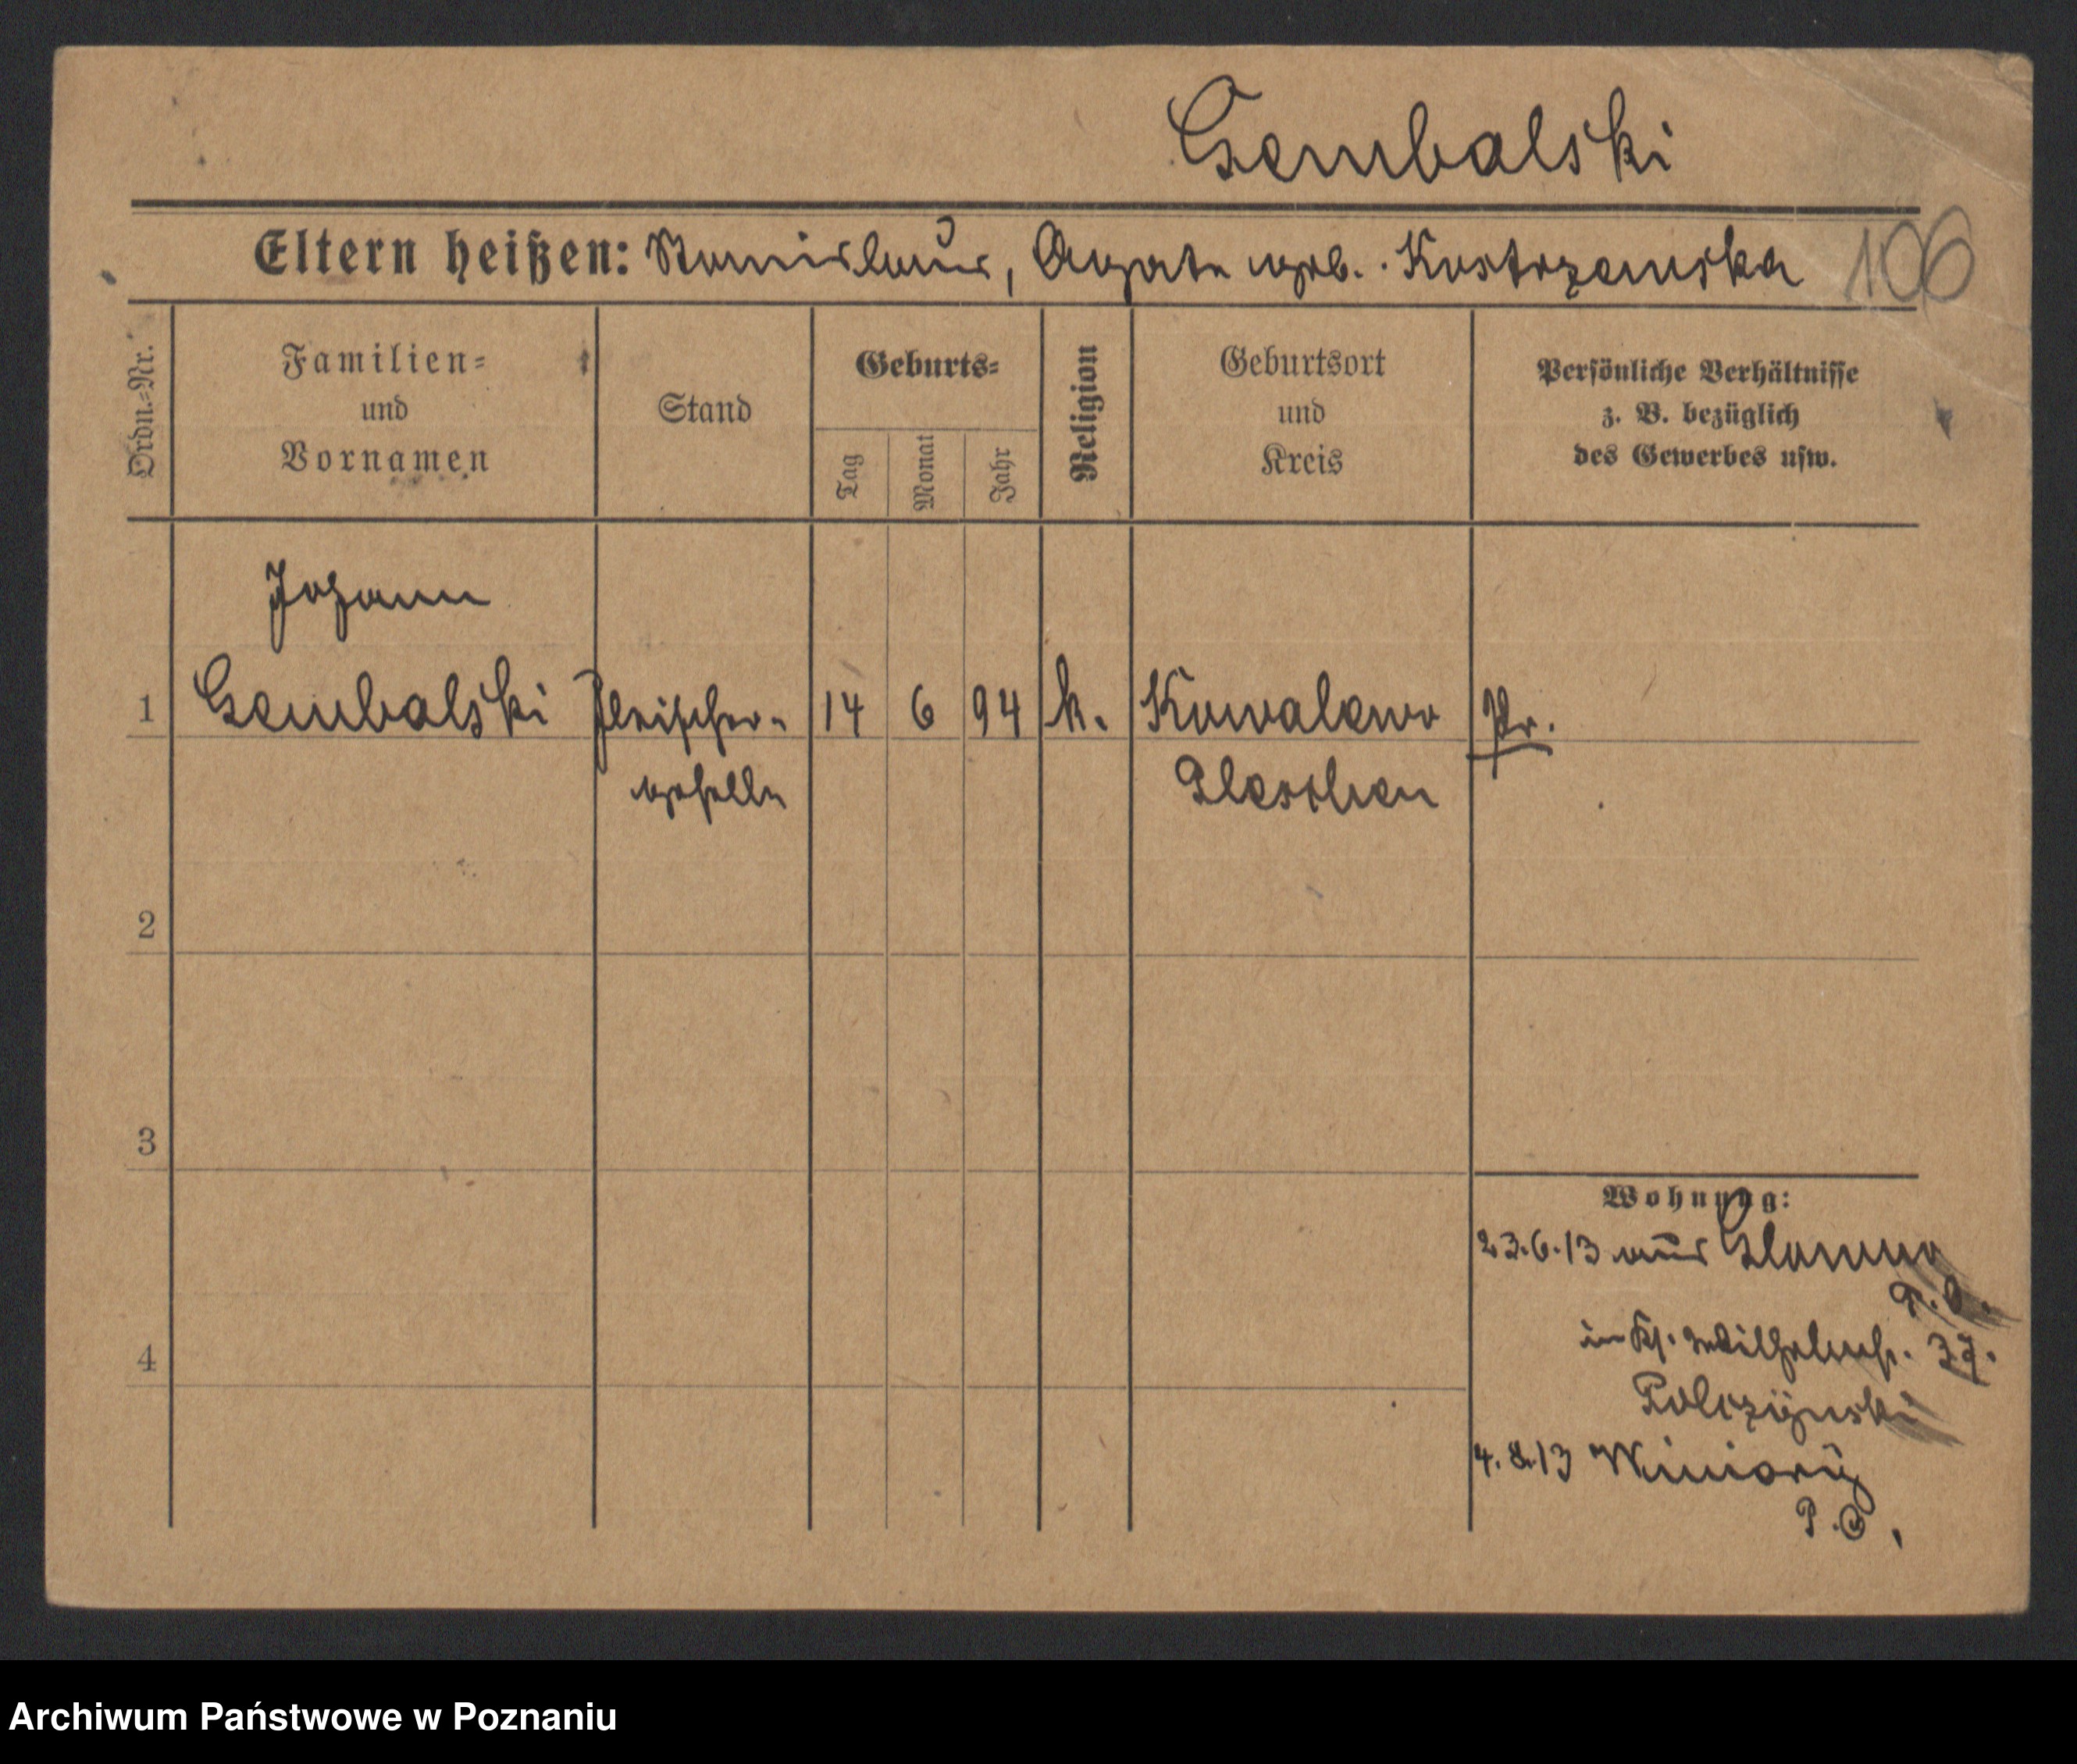 Gembalski
Eltern heißen: Stanislaus, Agate geb. Kostrzewska 106
Ordn.-Nr.
Familien-
und
Vornamen
Stand
Geburts-
Tag
Monat
Jahr
Religion
Geburtsort
und
Kreis
Persönliche Verhältnisse
z. B. bezüglich
des Gewerbes usw.
Johann
1 Gembalski Fleischer- 14 6 94 k. Kowalewo Pr.
geselle Pleschen
2
3
4
Wohnung:
23.6.13 aus Glowno
P.O.
in Kl. Wilhelmst.
4.8.13 Winiary
P.O.
Archiwum Państwowe w Poznaniu